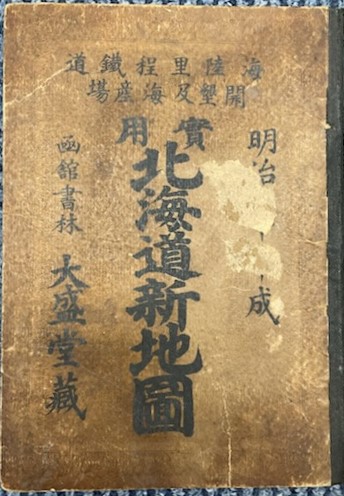 海陸里程鐵道
開墾及海産場
實用
明治
成
北海道新地圖
函館書林
大盛堂藏